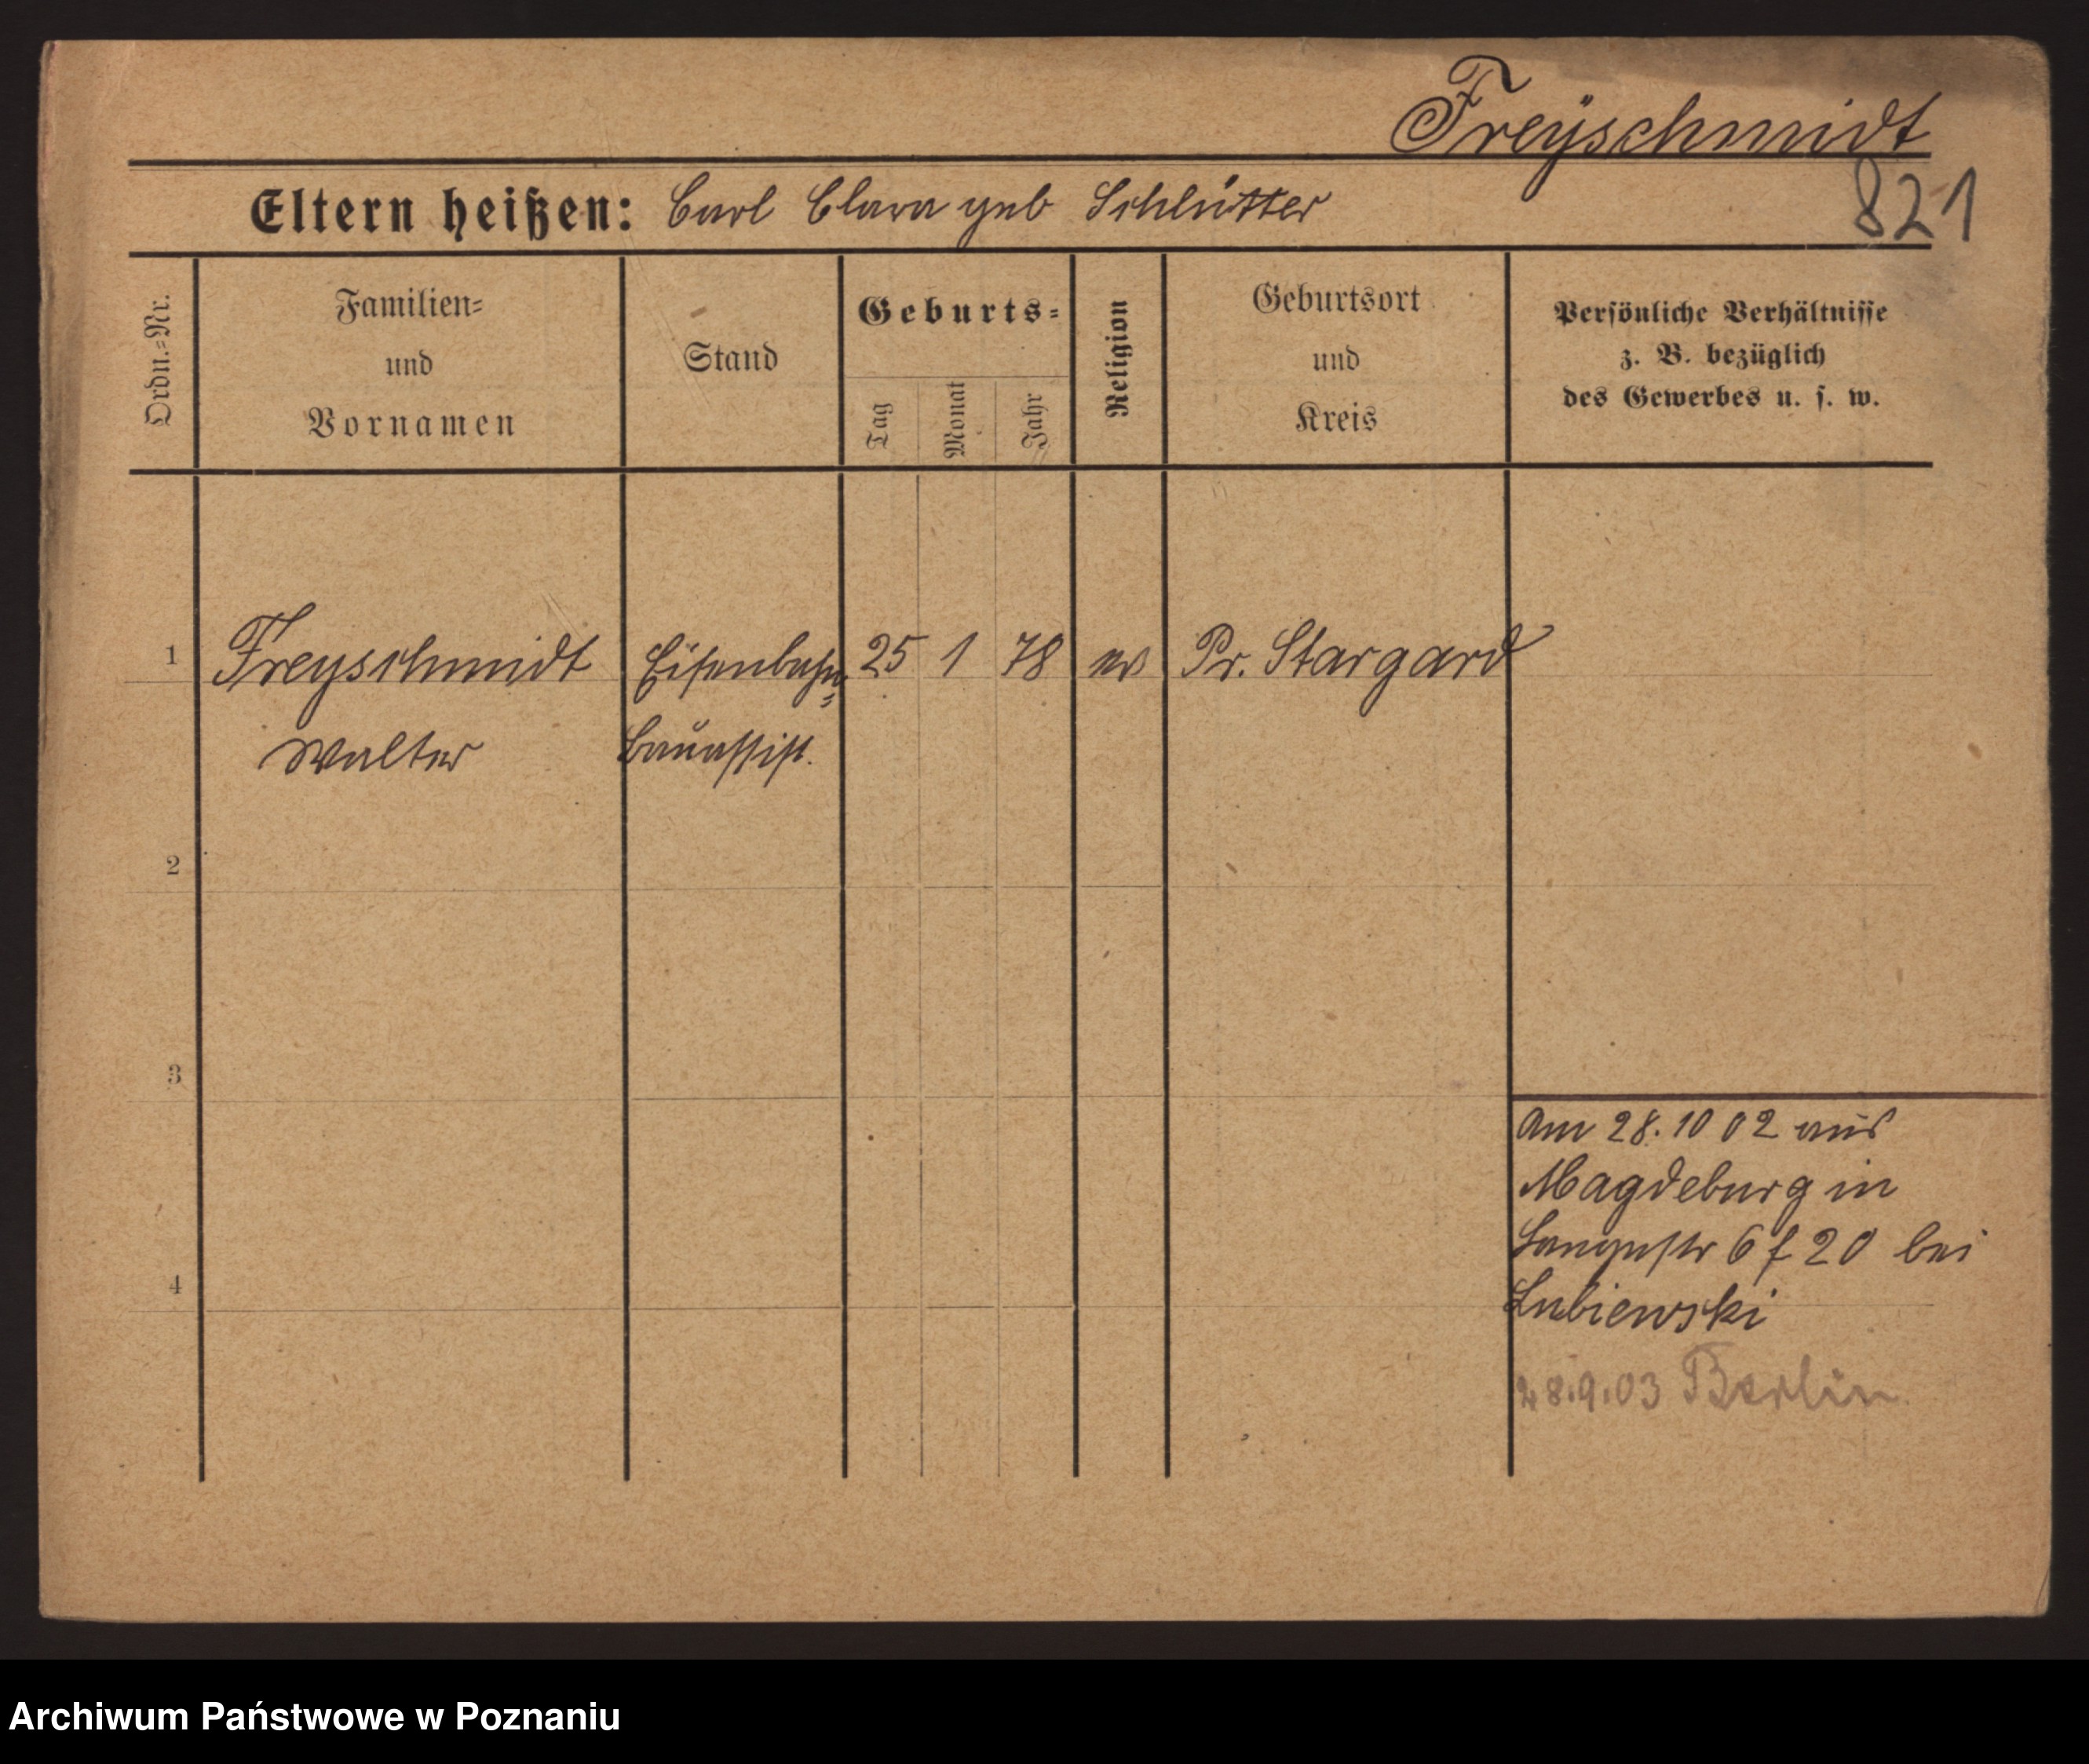 Freÿschmidt
821
Eltern heißen: Carl Clara geb Schlütter
Ordn.=Nr.
Familien=
und
Vornamen
Stand
Geburts=
Tag
Monat
Jahr
Religion
Geburtsort
und
Kreis
Persönliche Verhältnisse
z. B. bezüglich
des Gewerbes u. s. w.
1 Freyschmidt Eisenbahn= 25 1 78 ev Pr. Stargard
Walter Bauassist.
2
3
Am 28. 10 02 aus
Magdeburg in
Langestr 6 f 20 bei
4
Lubiewski
28.9.03 Berlin.
Archiwum Państwowe w Poznaniu